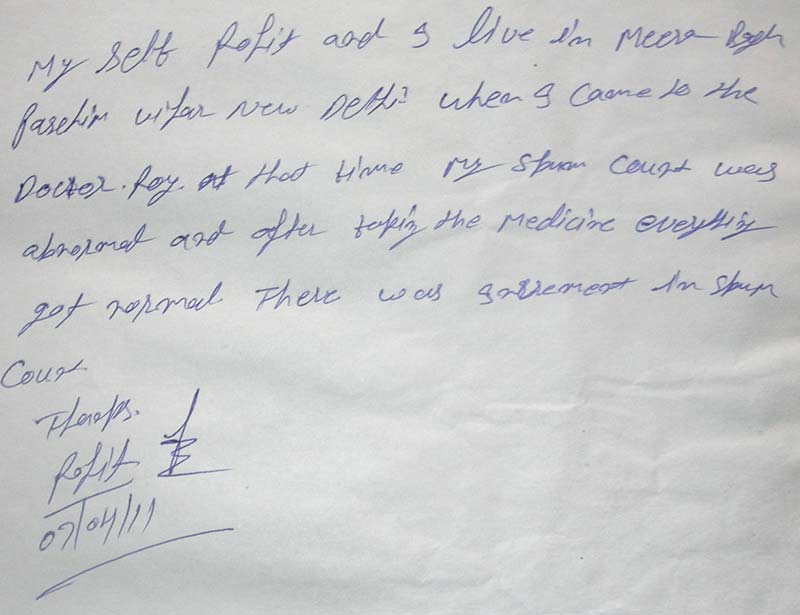 My self Rohit and I live in Meera Bagh
Paschim vihar New Delhi when I came to the
Doctor. Roy. at that time My spum Count was
abnormal and after taking the Medicine everything
got normal There was increment in spum
Count
Thanks.
Rohit
07/04/11